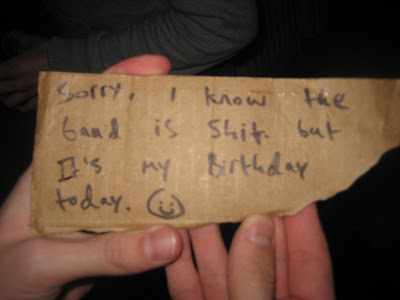 Sorry, I know the
band is Shit. but
It's my Birthday
today. ☺